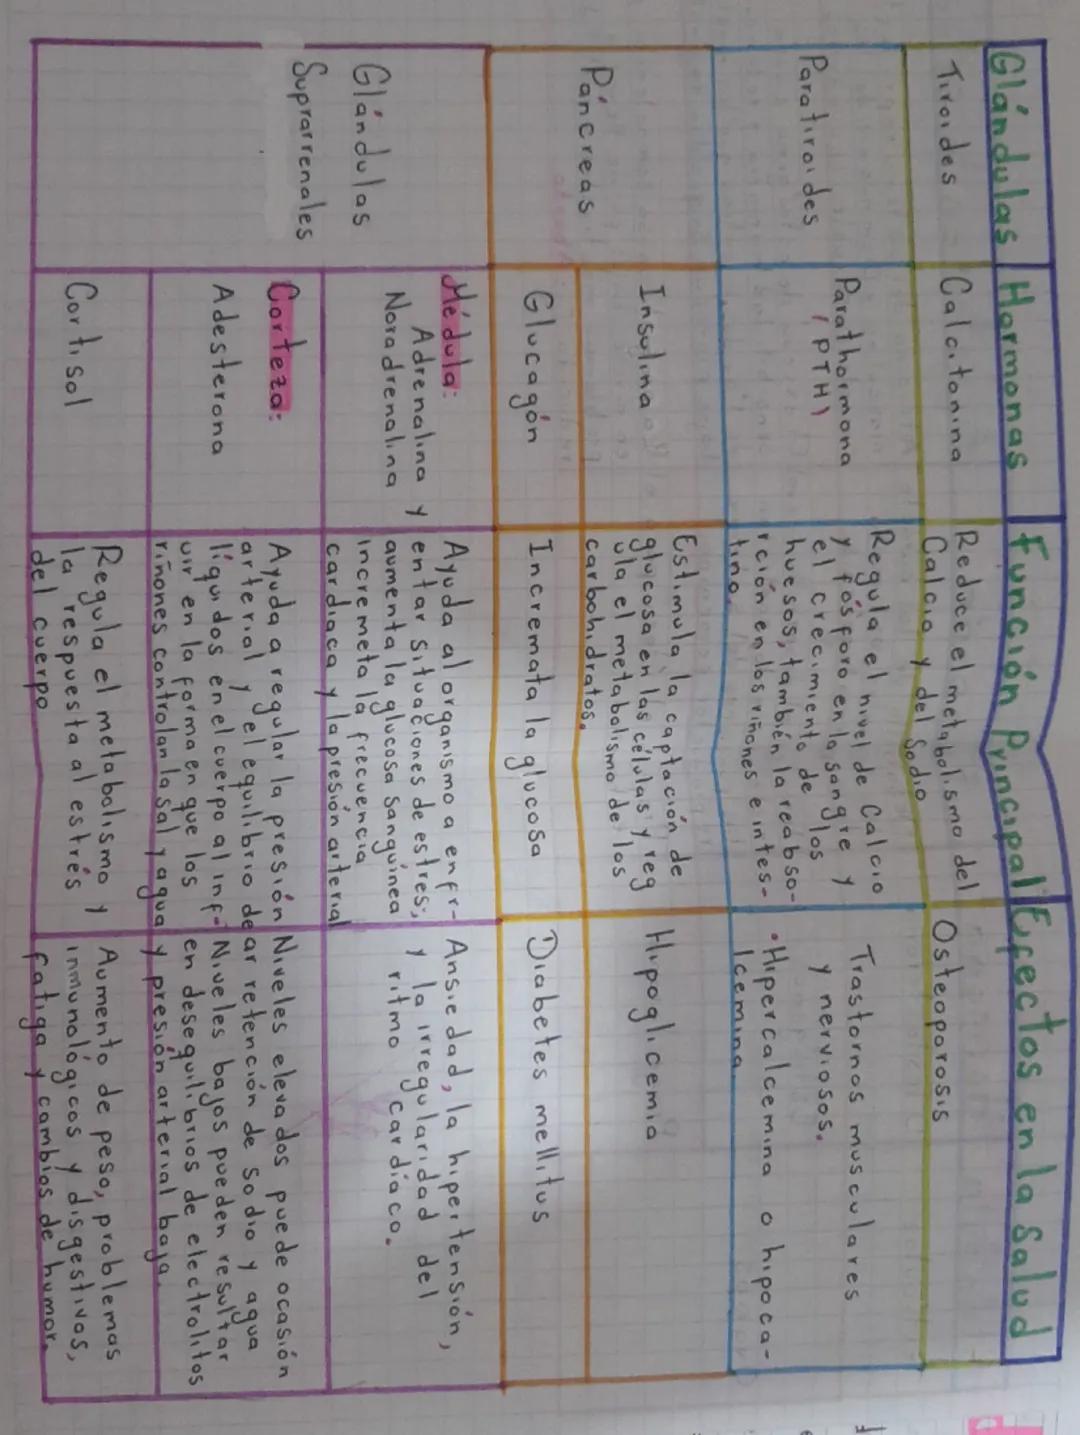 Glándulas
Hormonas
Función Principal
Efectos en la Salud
Tiroides
Calcitonina
Reduce el metabolismo del
Calcio y del Sodio
Osteoporosis
Paratiroides
Parathormona
(PTH)
Regula el nivel de Calcio
y fósforo en la sangre y
el crecimiento de los
huesos, también la reabso-
rción en los riñones e intes-
tino.
Trastornos musculares
y nerviosos.
• Hipercalcemina o hipoca-
lcemina
Páncreas
Insulina
Estimula la captación de
glucosa en las células y reg
ula el metabolismo de los
carbohidratos.
Hipoglicemia
Glucagón
Incremata la glucosa
Diabetes mellitus
Glándulas
Suprarrenales
Médula:
Adrenalina y
Noradrenalina
Ayuda al organismo a enfr-
entar situaciones de estrés;
aumenta la glucosa sanguínea
incremeta la frecuencia
cardiaca y la presión arterial
Ansiedad, la hipertensión,
y la irregularidad del
ritmo cardíaco.
Corteza:
Adesterona
Ayuda a regular la presión
arterial y el equilibrio de
líquidos en el cuerpo al inf-
uir en la forma en que los
riñones controlan la sal y agua
Niveles elevados puede ocasión
ar retención de sodio y agua
Niveles bajos pueden resultar
en desequilibrios de electrolitos
y presión arterial baja.
Cortisol
Regula el metabolismo y
la respuesta al estrés
del cuerpo
Aumento de peso, problemas
inmunológicos y disgestivos,
fatiga y cambios de humor.